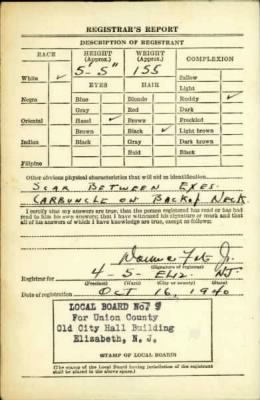 REGISTRAR'S REPORT
DESCRIPTION OF REGISTRANT
RACE HEIGHT (Approx.) WEIGHT (Approx.) COMPLEXION
5'-5" 155
White ✓ Sallow
EYES HAIR Light
Negro Blue Blonde Ruddy ✓
Gray Red Dark
Oriental Hazel ✓ Brown Freckled
Brown Black ✓ Light brown
Indian Black Gray Dark brown
Bald Black
Filipino
Other obvious physical characteristics that will aid in identification
SCAR BETWEEN EYES.
CARBUNCLE ON BACK OF NECK
I certify that my answers are true; that the person registered has read or has had
read to him his own answers; that I have witnessed his signature or mark and that
all of his answers of which I have knowledge are true, except as follows:
Jr.
(Signature of registrar)
Registrar for 4 - 5 - ELIZ. NJ.
(Precinct) (Ward) (City or county) (State)
Date of registration OCT 16, 1940
LOCAL BOARD No. 9
For Union County
Old City Hall Building
Elizabeth, N. J.
(STAMP OF LOCAL BOARD)
(The stamp of the Local Board having jurisdiction of the registrant
shall be placed in the above space.)